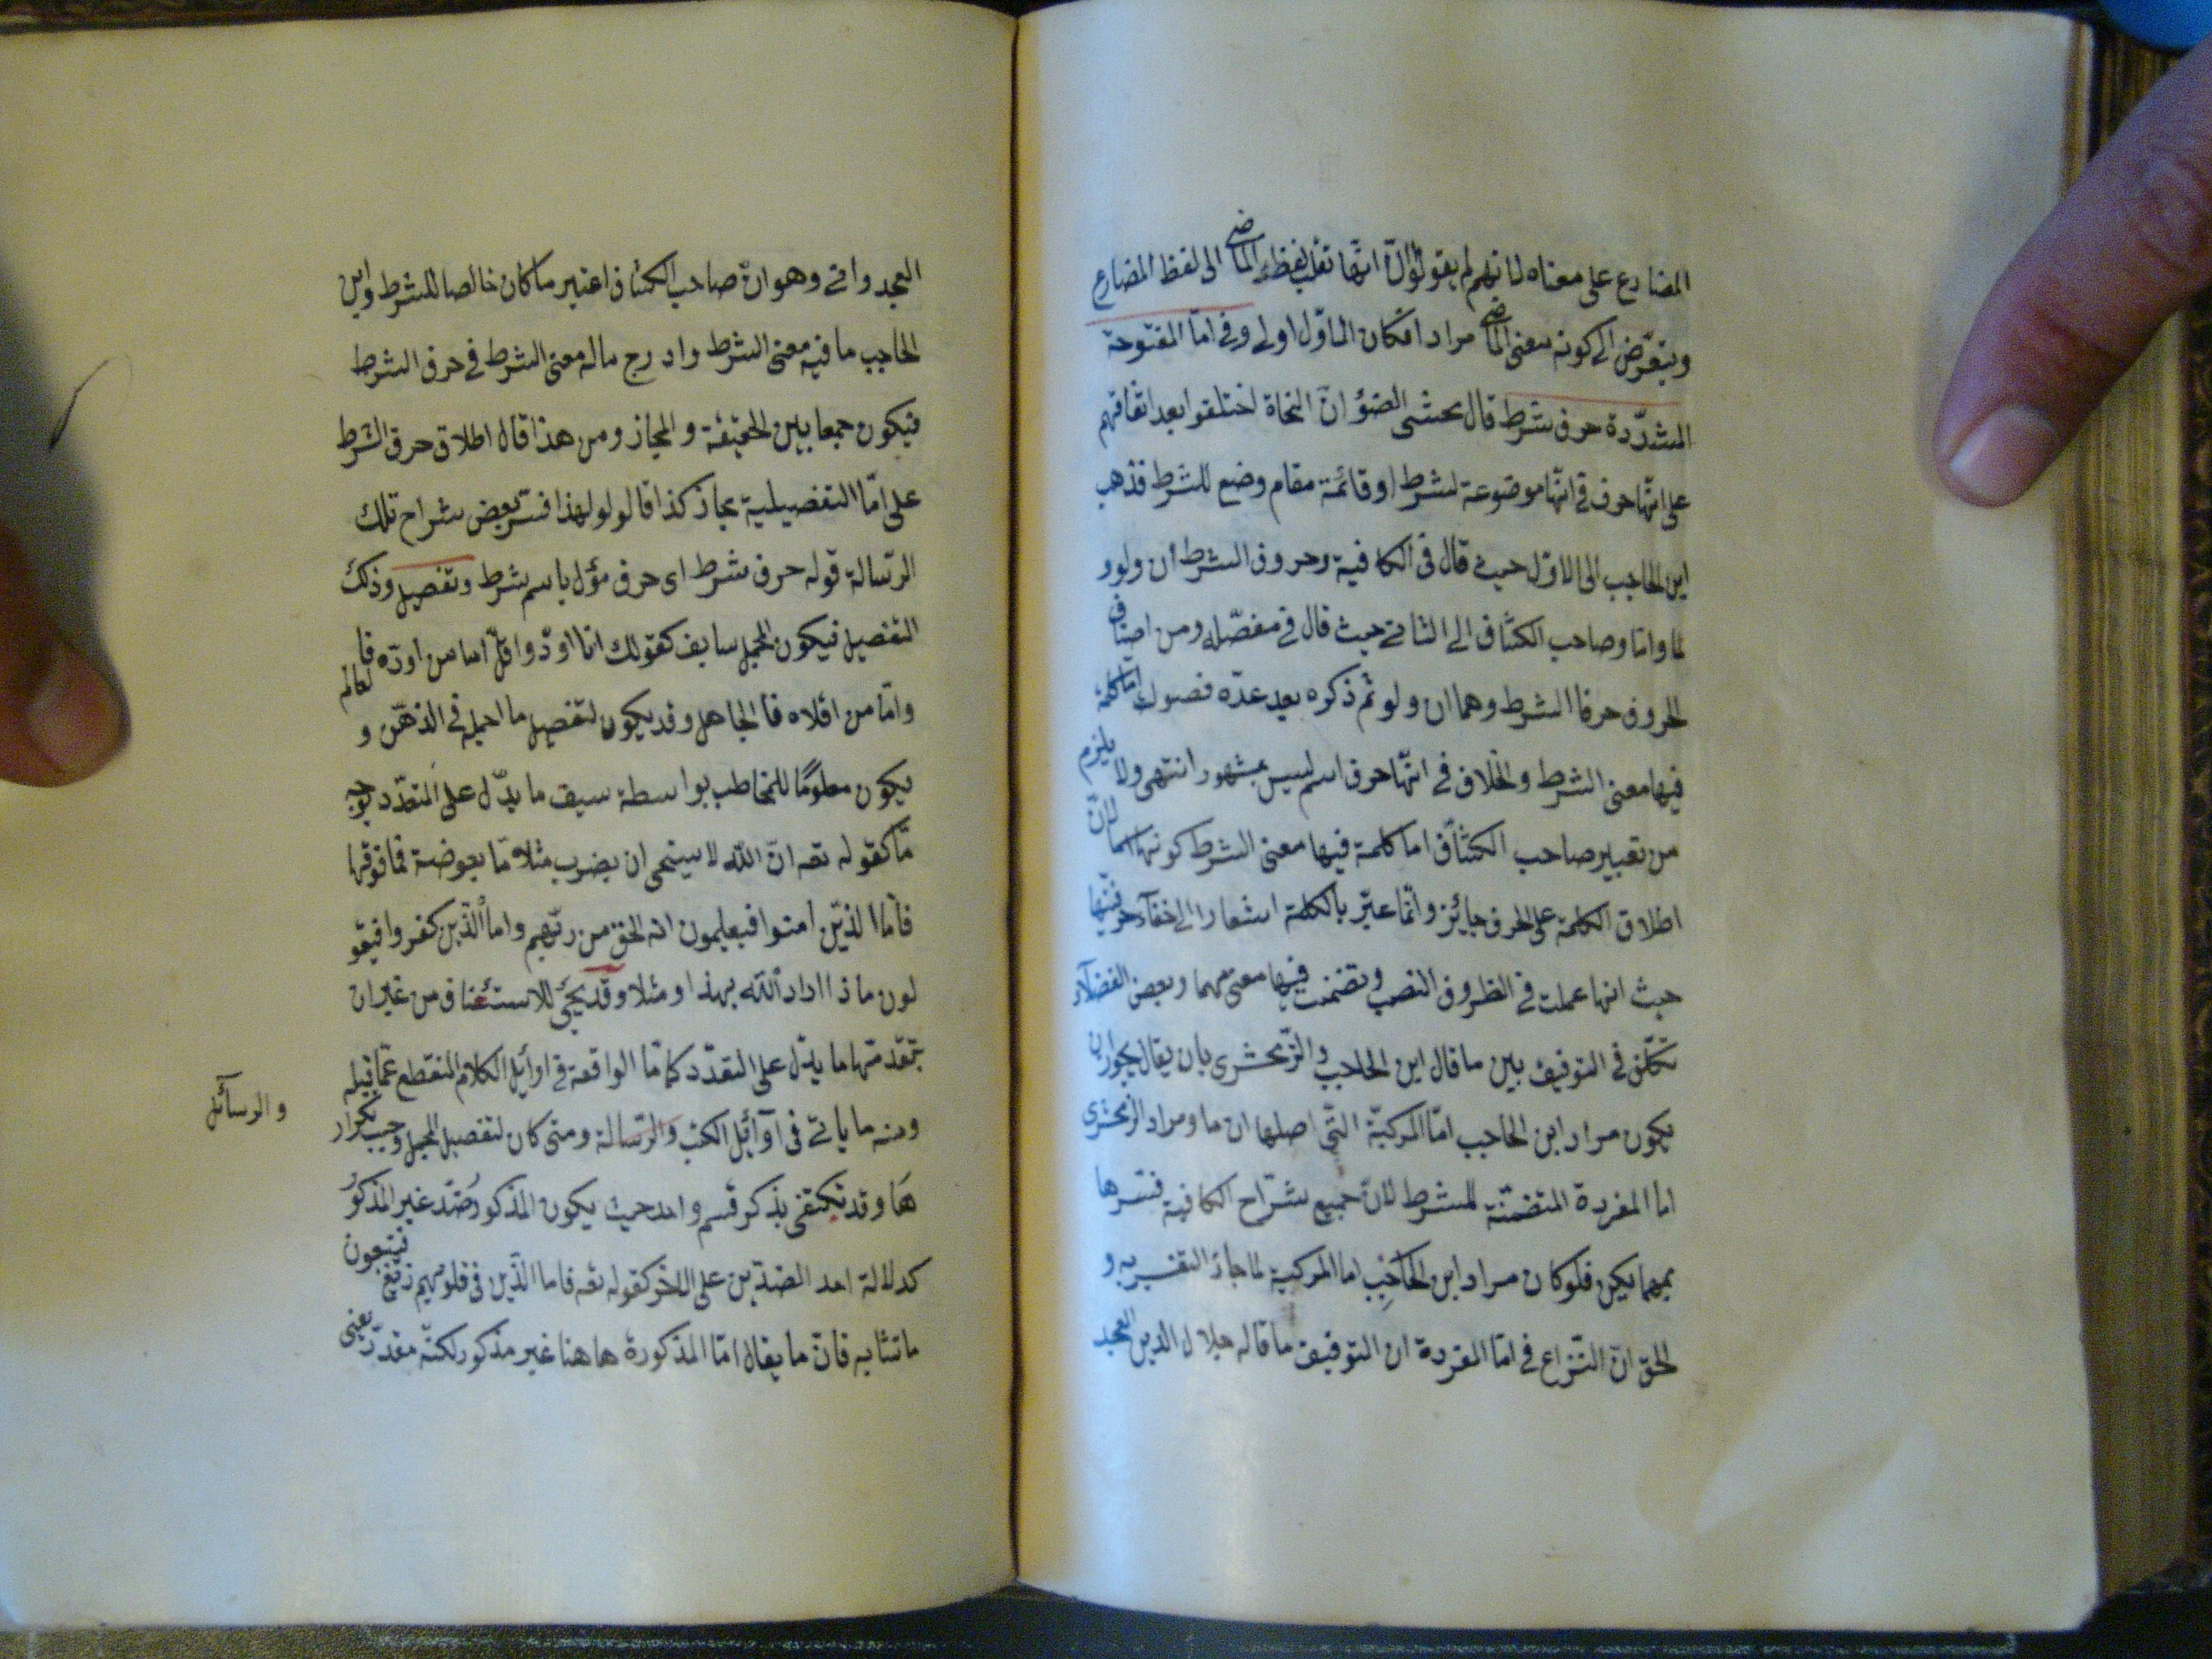 المضارع على معناه لانهم لم يقولوا لانّ انها تقلب لفظ الماضي الى لفظ المضارع
ويتعرّض الى كونه بمعنى الماضي مراد افكان الماوّل اولى وفى امّا المفتوحة
المشدّدة حرف شرط قال محشى الضؤ انّ النحاة اختلفوا بعد اتفاقهم
على انّها حرف فى انّها موضوعة لشرط او قائمة مقام وضع للشرط فذهب
ابن الحاجب الى الاوّل حيث قال فى الكافية وحروف الشرط ان ولو و
لما وامّا وصاحب الكشّاف الى الثانى حيث قال فى مفصّله ومن اصناف
الحروف حرفا الشرط وهما ان ولو ثم ذكره بعد عدّه فصول امّا كلمة
فيها معنى الشرط والخلاف فى انّها حرف اسم ليس بمشهور انتهى ولا يلزم
من تعبير صاحب الكشّاف اما كلمة فيها معنى الشرط كونها اسما لانّ
اطلاق الكلمة على الحرف جائز وانّما عبّر بالكلمة اشعارا الى خفآء حرفيّتها
حيث انها عملت فى الظروف النصب وتضمنت فيها معنى مهما وبعض الفضلآء
تكلّف فى التوفيق بين ما قال ابن الحاجب والزمخشرى بان يقال يجوز ان
يكون مراد ابن الحاجب امّا المركبّة التّى اصلها ان ما ومراد الزمخشرى
اما المفردة المتضمّنة للشرط لانّ جميع شرّاح الكافية فسّرها
بمهما يكن فلو كان مراد ابن الحاجب اما المركبة لما جاز التفسير به و
الحق انّ النّزاع فى امّا المفردة ان التوفيق ما قاله جلال الدين العجد
العجدوانى وهو انّ صاحب الكشّاف اعتبر ما كان خالصا للشرط وابن
الحاجب ما فيه معنى الشرط وادرج ماله معنى الشرط فى حرف الشرط
فيكون جمعا بين الحقيقة والمجاز ومن هذا قال اطلاق حرف الشرط
على امّا التفصيلية مجاز كذا قالوا ولهذا فسّر بعض شراح تلك
الرّسالة قوله حرف شرط اى حرف مؤل باسم شرط وتفصيل وذلك
التفصيل فيكون المجمل سابق كقولك انا اودّ واقلّ اما من اودّه فالعالم
وامّا من اقلاه فالجاهل وقد يكون لتفصيل ما اجمله فى الذهن و
يكون معلومًا للمخاطب بواسطة سبق ما يدّل على المتعدّد بوجه
مّا كقوله تعه انّ اللّه لا يستحى ان يضرب مثلا مّا بعوضة فما فوقها
فامّا الذين امنوا فيعلمون انه الحق من ربّهم واما الّذين كفروا فيقو
لون ماذا اراد اللّه بهذا ومثلا وقد يجئ للاستئناف من غير ان
يتقدمتها ما يدّل على التعدّد كامّا الواقعة فى اوائل الكلام المنقطع عمّا قبله
ومنه ما ياتى فى اوآئل الكتب والرّسالة ومتى كان لتفصيل المجمل وجب تكرار
والرسآئل
ها وقد تكتفى بذكر قسم واحد حيث يكون المذكور ضدّ غير المذكور
كدلالة احد الضدّين على الاخر كقوله تعه فاما الّذين فى قلوبهم زيغ فيتبعون
ما تشابه فانّ ما يقال امّا المذكورة هاهنا غير مذكور لكنّه مقدّر يعنى